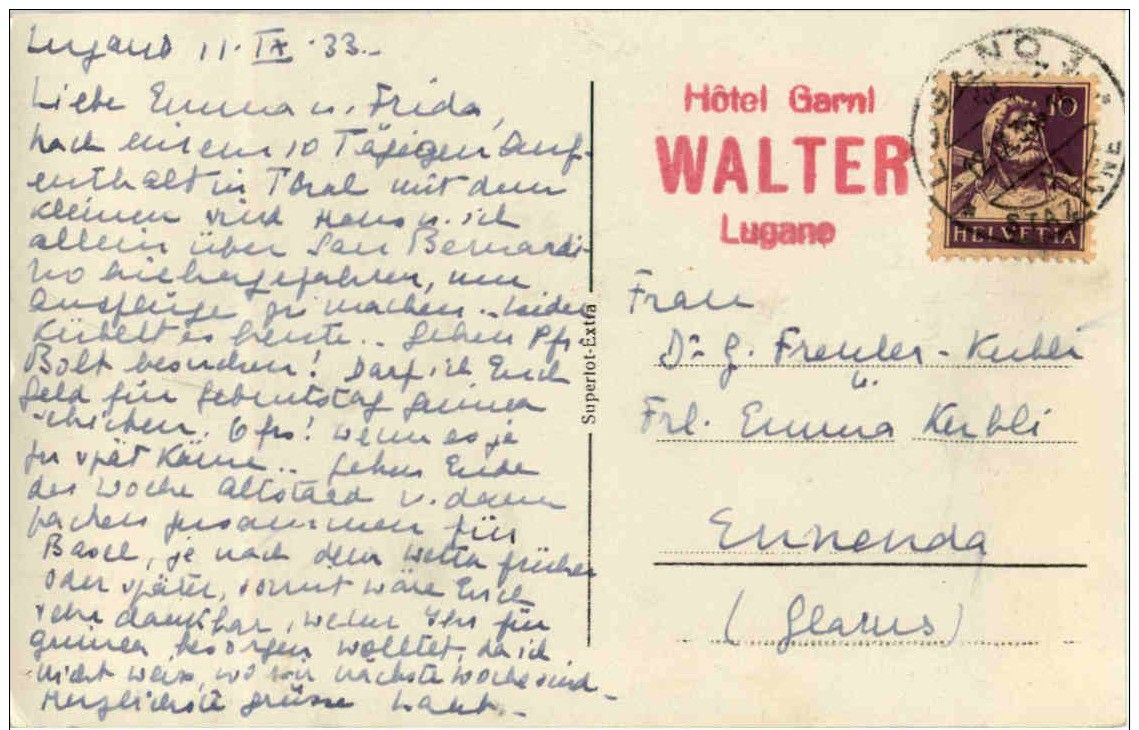 Lugano 11. IX. 33.
Liebe Emma u. Frida,
nach einem 10 Tägigen Auf-
enthalt in mit dem
Kleinen sind Hans u. ich
allein über San Bernardi-
no hiehergefahren, um
Ausflüge zu machen.. leider
Kübelt es heute.. Gehen Pfr
Bolt besuchen! Darf ich Euch
Geld für Geburtstag
schicken, 6 frs! wenn es je
zu spät Käme.. Gehen Ende
der Woche u. dann
packen zusammen für
Basel, je nach dem Wetter früher
oder später, somit wäre Euch
sehr dankbar, wenn Ihr für
besorgen wolltet, da ich
nicht weiss, wo wir nächste Woche sind-
Herzlichste Grüsse
Superlot-Extra
Hôtel Garni
WALTER
Lugano
LUGANO 3
STAZIONE
10
HELVETIA
Frau
Dr. G. Freuler-Kubli
u.
Frl. Emma Kubli
Ennenda
(Glarus)